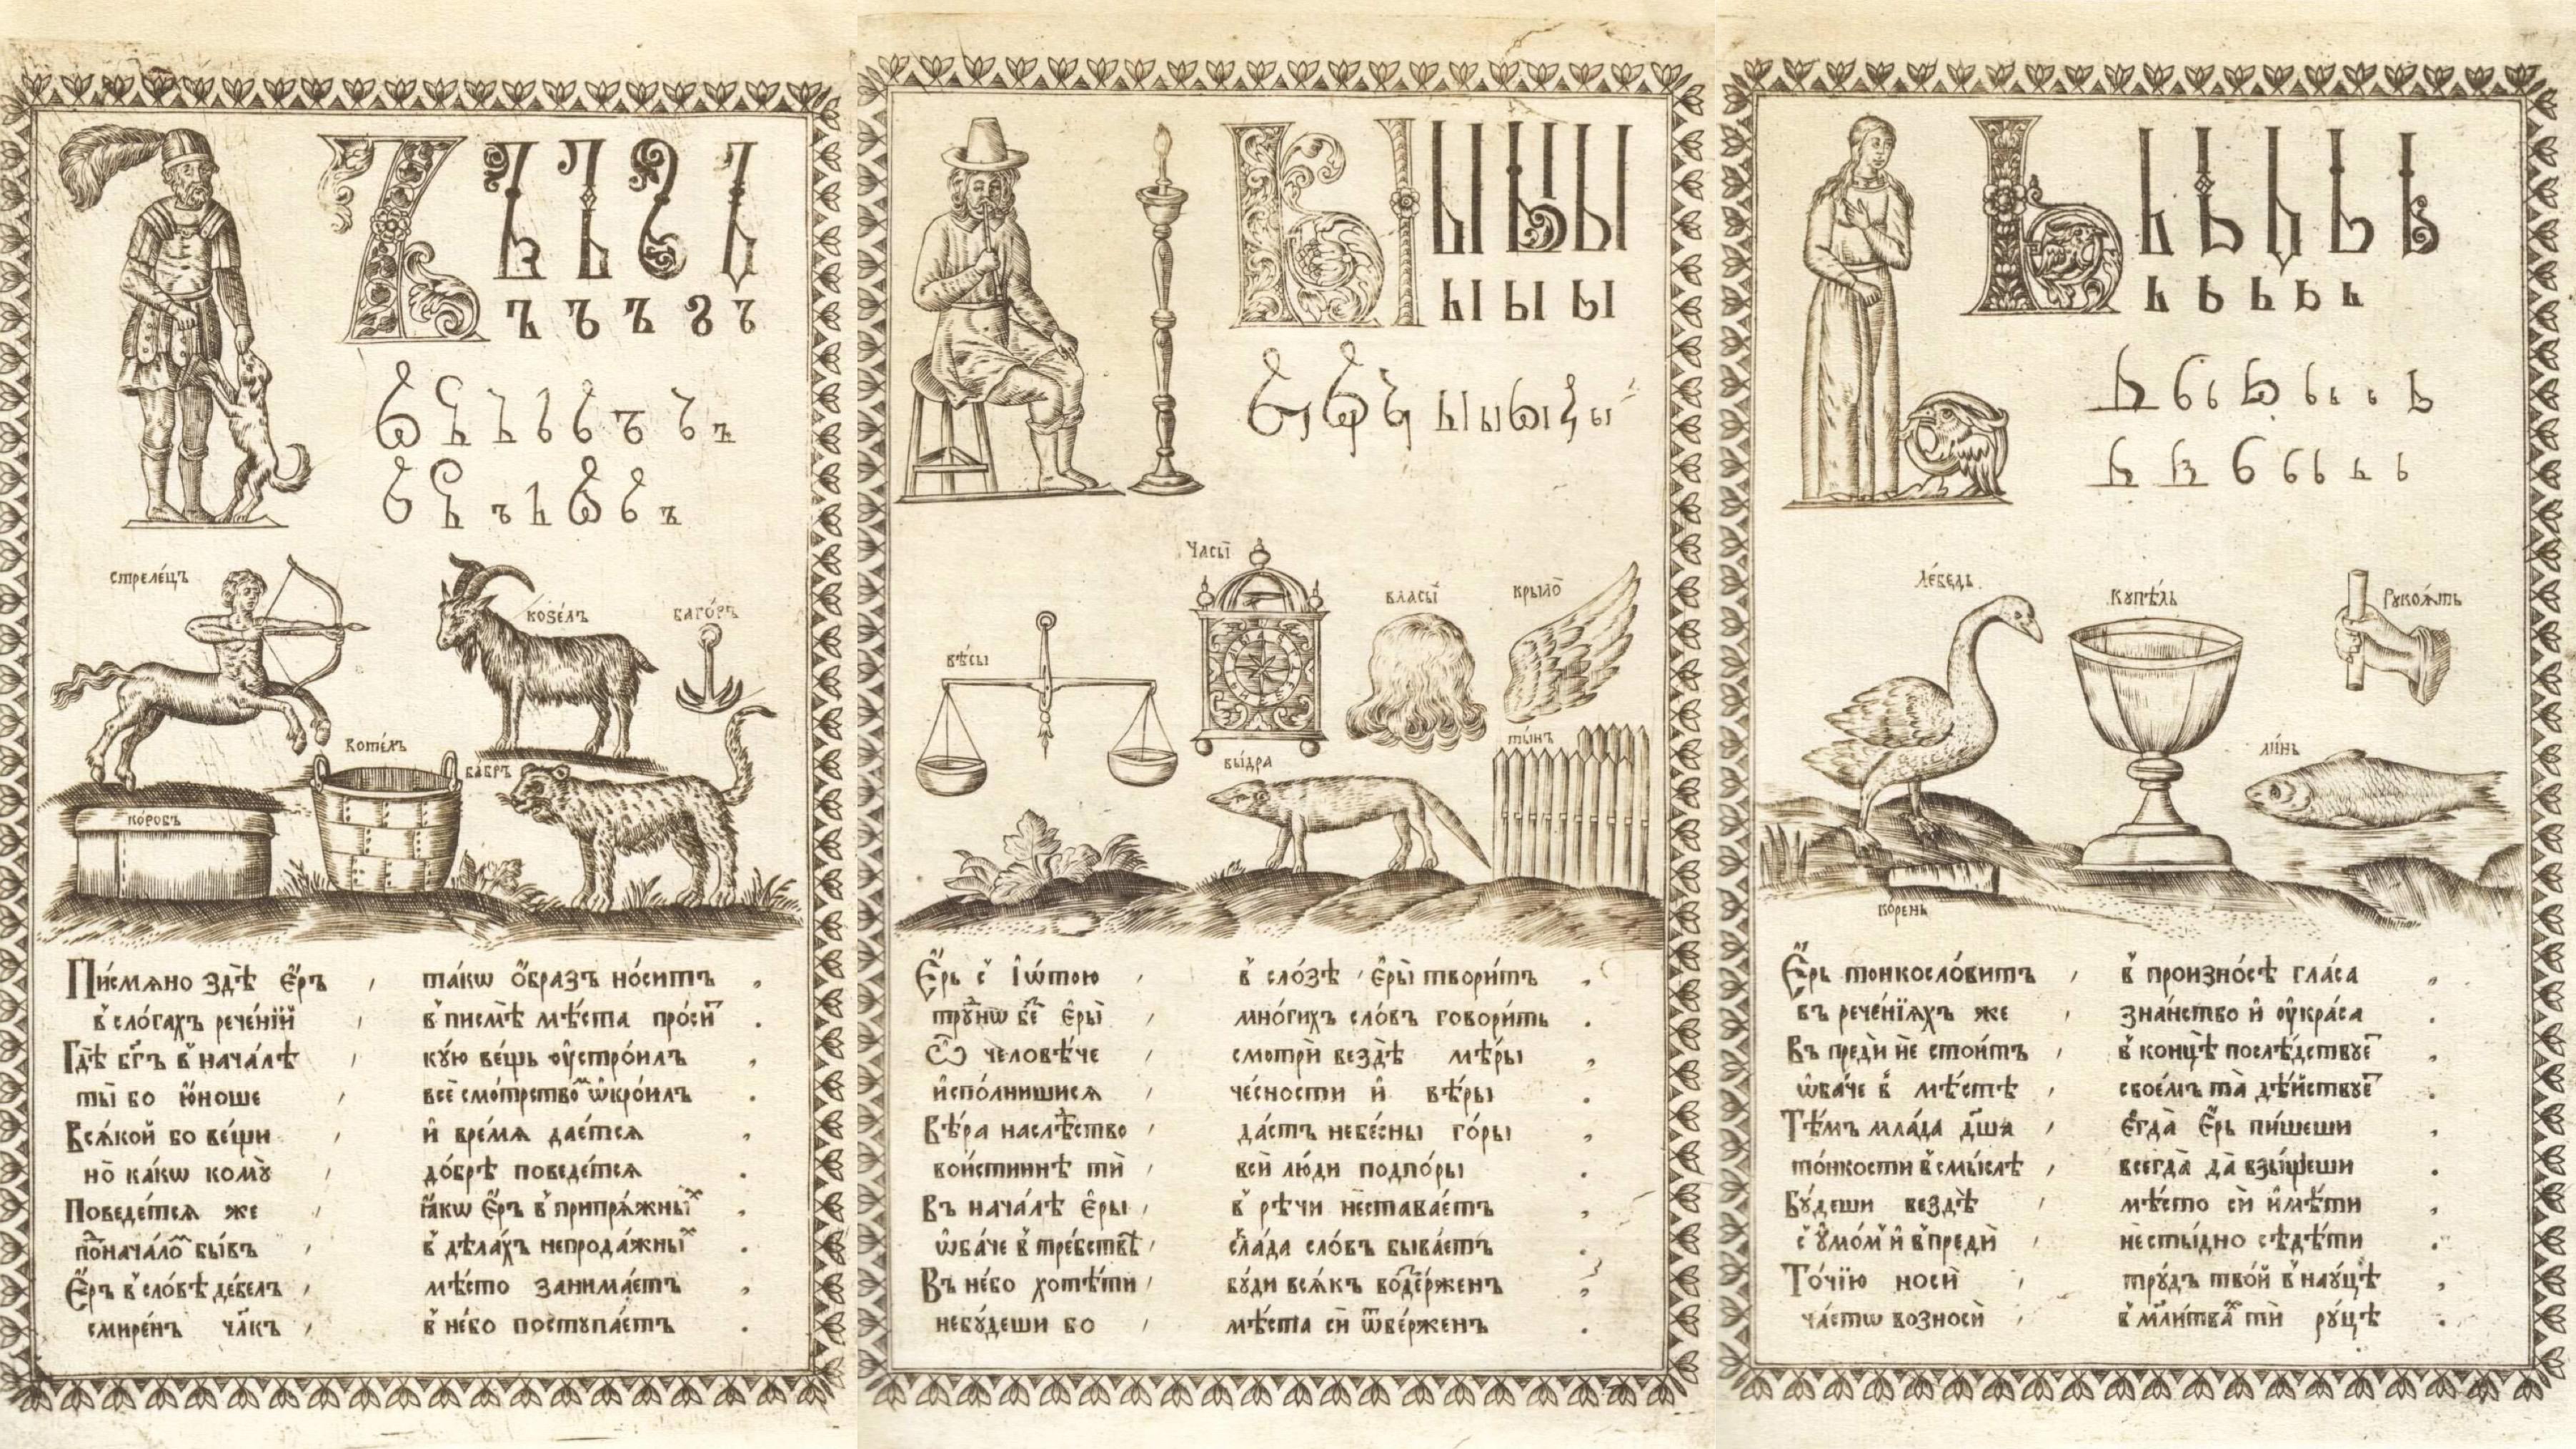 Ъ
ъ ъ ъ ъ ъ
стреле́цъ
коѕе́лъ
баго́ръ
коте́лъ
ба́бръ
ко́робъ
Пи́смѧно здѣ̀ є҆́ръ , та́кѡ ѡ҆́бразъ но́ситъ ,
в̾ сло́гахъ рече́нїй , в̾ писмѣ̀ мѣ́ста про́си .
Гдѣ̀ бг҃ъ в̾ нача́лѣ , ку́ю ве́щь ᲂу҆стро́илъ ,
ты̀ бо ю҆́ноше , всѐ смо́трство ѡ҆кро́илъ .
Всѧ́кой бо ве́щи , и҆ вре́мѧ дае́тсѧ ,
но̀ ка́кѡ кому̀ , до́брѣ поведе́тсѧ .
Поведе́тсѧ же , ꙗ҆́кѡ є҆́ръ в̾ припрѧ́жныⷯ ,
поⷩ҇нача́лоⷨ бы́въ , в̾ дѣла́хъ непрода́жныⷯ .
Є҆́ръ в̾ сло́вѣ де́белъ , мѣ́сто занима́етъ ,
смире́нъ чл҃къ , в̾ не́бо поступа́етъ .
Ы ы ы ы
ы ы ы
Часы̀
вѣ́сы
власы̀
крыло̀
ты́нъ
вы́дра
Є҆́рь с̾ і҆ѡ́тою , в̾ сло́зѣ , є҆ры̀ твори́тъ .
тру́нѡ бе є҆ры̀ , мно́гихъ сло́въ говори́тъ .
Ѽ человѣ́че , смотрѝ вездѣ̀ мѣ́ры ,
и҆спо́лнишисѧ , че́сности и҆ вѣ́ры .
Вѣ́ра наслѣ́ство , да́стъ небе́сны го́ры ,
вои́стиннѣ тѝ , всѝ лю́ди подпо́ры .
Въ нача́лѣ є҆ры̀ , в̾ рѣ́чи нестава́етъ ,
ѡ҆ба́че в̾ тре́бствѣ , сꙁа́да сло́въ быва́етъ .
Въ не́бо хотѣ́ти , бу́ди всѧ́къ воⷥде́рженъ ,
небу́деши бо , мѣ́ста сѝ ѿве́рженъ .
Ь ь ь ь ь ь
ь ь ь ь ь
ле́бедь
купѣ́ль
Рукоѧ́ть
ли́нь
ко́рень
Є҆́рь тонкосло́витъ , в̾ произно́сѣ гла́са ,
въ рече́нїѧхъ же , зна́нство и҆ ᲂу҆кра́са .
Въ предѝ не стои́тъ , в̾ концѣ̀ послѣ́дствуеⷮ ,
ѡ҆ба́че в̾ мѣ́стѣ , свое́мъ та̀ дѣ́йствуеⷮ .
Тѣ́мъ мла́да дш҃а , є҆гда̀ є҆́рь пи́шеши ,
то́нкости в̾ смы́слѣ , всегда̀ да взы́щеши .
Бу́деши вездѣ̀ , мѣ́сто сѝ и҆мѣ́ти ,
с̾ ᲂу҆мо́м̾ и҆ в̾предѝ , несты́дно сѣдѣ́ти .
То́чїю носѝ , тру́дъ тво́й в̾ нау́цѣ ,
ча́стѡ возносѝ , в̾ мл҃и́тваⷯ тѝ ру́цѣ .